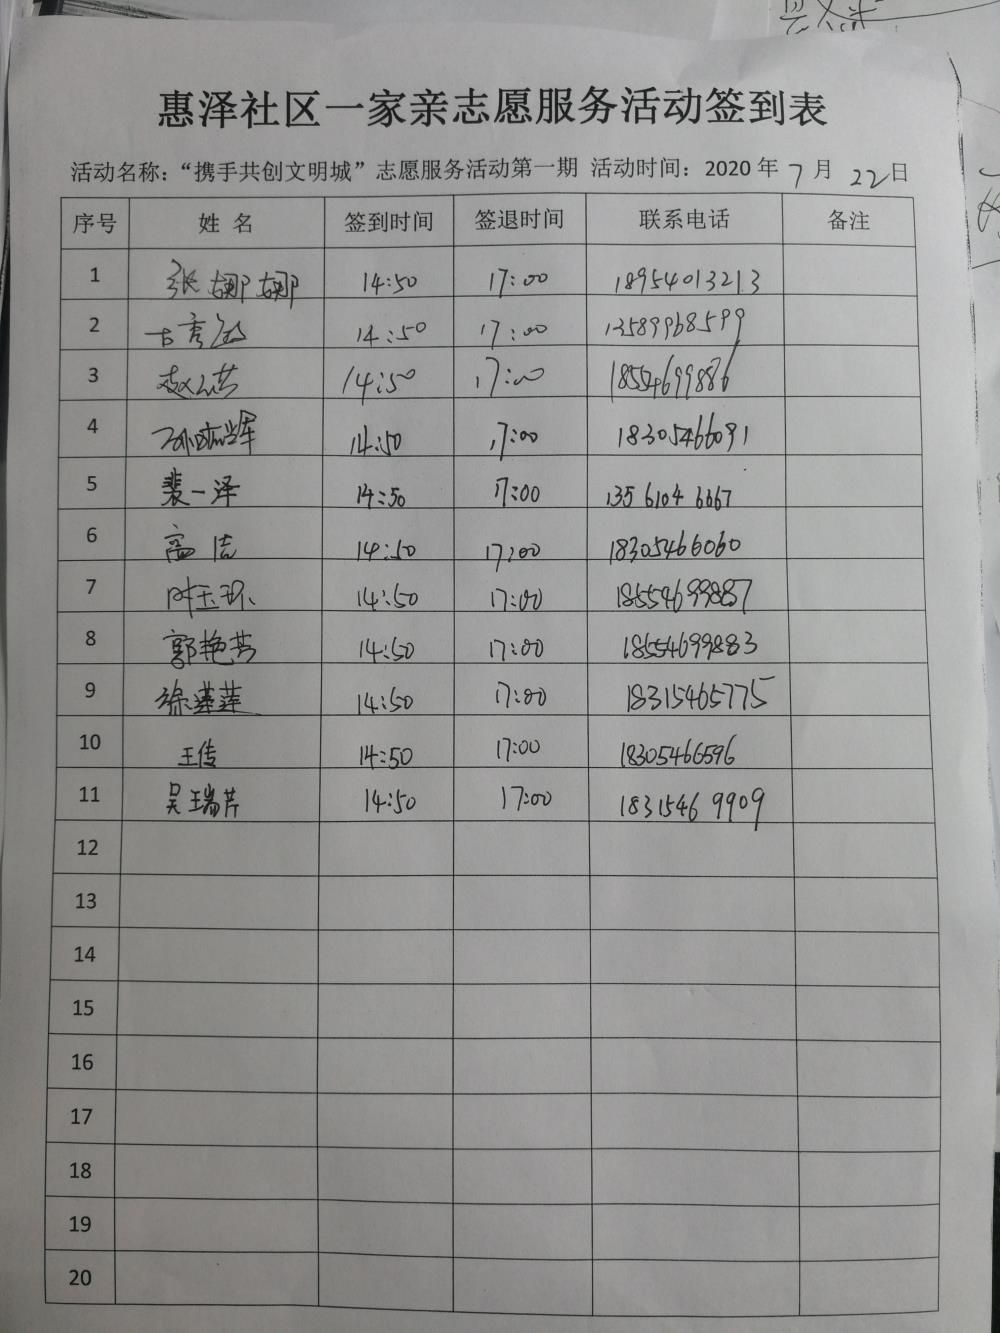 惠泽社区一家亲志愿服务活动签到表
活动名称：“携手共创文明城”志愿服务活动第一期 活动时间：2020 年 7 月 22 日
序号 姓 名 签到时间 签退时间 联系电话 备注
1 张娜娜 14:50 17:00 18954013213
2 14:50 17:00 13589968599
3 14:50 17:00 18554699886
4 14:50 17:00 18305466091
5 裴一泽 14:50 17:00 135 6104 6667
6 高洁 14:50 17:00 18305466060
7 叶玉环 14:50 17:00 18554699887
8 郭艳芳 14:50 17:00 18554699883
9 徐莲莲 14:50 17:00 18315465775
10 王传 14:50 17:00 18305466596
11 吴瑞芹 14:50 17:00 1831546 9909
12
13
14
15
16
17
18
19
20